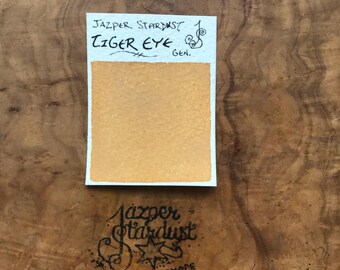 JAZPER STARDUST
TIGER EYE
GEN.
Jazper
Stardust